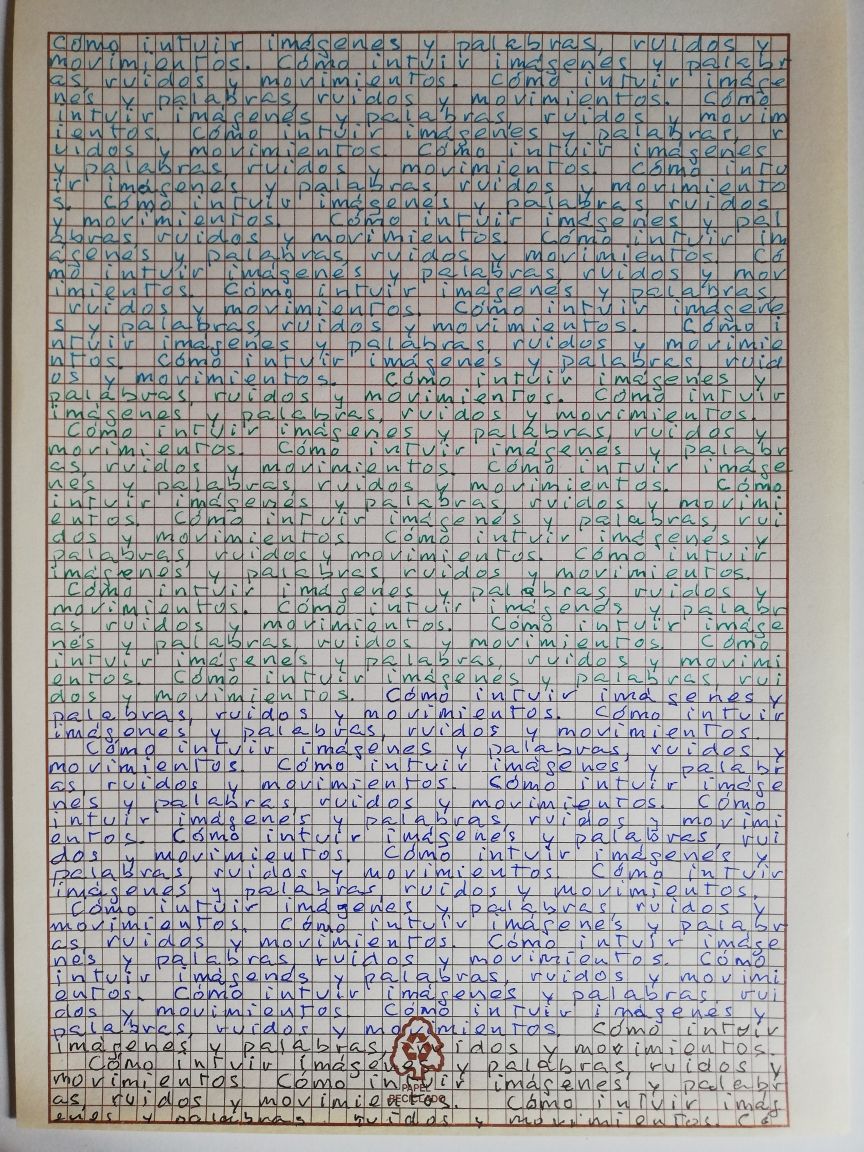 Cómo intuir imágenes y palabras, ruidos y
movimientos. Cómo intuir imágenes y palabr
as, ruidos y movimientos. Cómo intuir imáge
nes y palabras, ruidos y movimientos. Cómo
intuir imágenes y palabras, ruidos y movim
ientos. Cómo intuir imágenes y palabras, r
uidos y movimientos. Cómo intuir imágenes
y palabras, ruidos y movimientos. Cómo intu
ir imágenes y palabras, ruidos y movimiento
s. Cómo intuir imágenes y palabras ruidos
y movimientos. Cómo intuir imágenes y pal
abras, ruidos y movimientos. Cómo intuir im
ágenes y palabras, ruidos y movimientos. Có
mo intuir imágenes y palabras ruidos y mov
imientos. Cómo intuir imágenes y palabras,
ruidos y movimientos. Cómo intuir imágene
s y palabras, ruidos y movimientos. Cómo i
ntuir imágenes y palabras, ruidos y movimie
ntos. Cómo intuir imágenes y palabras, ruid
os y movimientos. Cómo intuir imágenes y
palabras, ruidos y movimientos. Cómo intuir
imágenes y palabras, ruidos y movimientos.
Cómo intuir imágenes y palabras, ruidos y
movimientos. Cómo intuir imágenes y palabr
as, ruidos y movimientos. Cómo intuir imáge
nes y palabras, ruidos y movimientos. Cómo
intuir imágenes y palabras, ruidos y movimi
entos. Cómo intuir imágenes y palabras, rui
dos y movimientos. Cómo intuir imágenes y
palabras, ruidos y movimientos. Cómo intuir
imágenes y palabras, ruidos y movimientos.
Cómo intuir imágenes y palabras ruidos y
movimientos. Cómo intuir imágenes y palabr
as ruidos y movimientos. Cómo intuir imáge
nes y palabras, ruidos y movimientos. Cómo
intuir imágenes y palabras, ruidos y movimi
entos. Cómo intuir imágenes y palabras, rui
dos y movimientos. Cómo intuir imágenes y
palabras, ruidos y movimientos. Cómo intuir
imágenes y palabras, ruidos y movimientos.
Cómo intuir imágenes y palabras, ruidos y
movimientos. Cómo intuir imágenes y palabr
as, ruidos y movimientos. Cómo intuir imáge
nes y palabras, ruidos y movimientos. Cómo
intuir imágenes y palabras ruidos y movimi
entos. Cómo intuir imágenes y palabras, rui
dos y movimientos. Cómo intuir imágenes y
palabras, ruidos y movimientos. Cómo intuir
imágenes y palabras ruidos y movimientos.
Cómo intuir imágenes y palabras, ruidos y
movimientos. Cómo intuir imágenes y palabr
as, ruidos y movimientos. Cómo intuir imáge
nes y palabras, ruidos y movimientos. Cómo
intuir imágenes y palabras, ruidos y movimi
entos. Cómo intuir imágenes y palabras, rui
dos y movimientos. Cómo intuir imágenes y
palabras, ruidos y movimientos. Cómo intuir
imágenes y palabras, ruidos y movimientos.
Cómo intuir imágenes y palabras, ruidos y
movimientos. Cómo intuir imágenes y palabr
PAPEL
as, ruidos y movimientos. Cómo intuir imág
RECICLADO
enes y palabras, ruidos y movimientos. Có